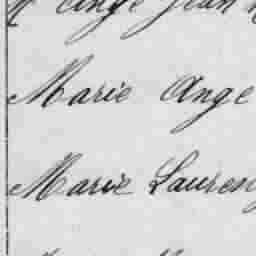 Ange Jean
Marie Ange
Marie Lauren